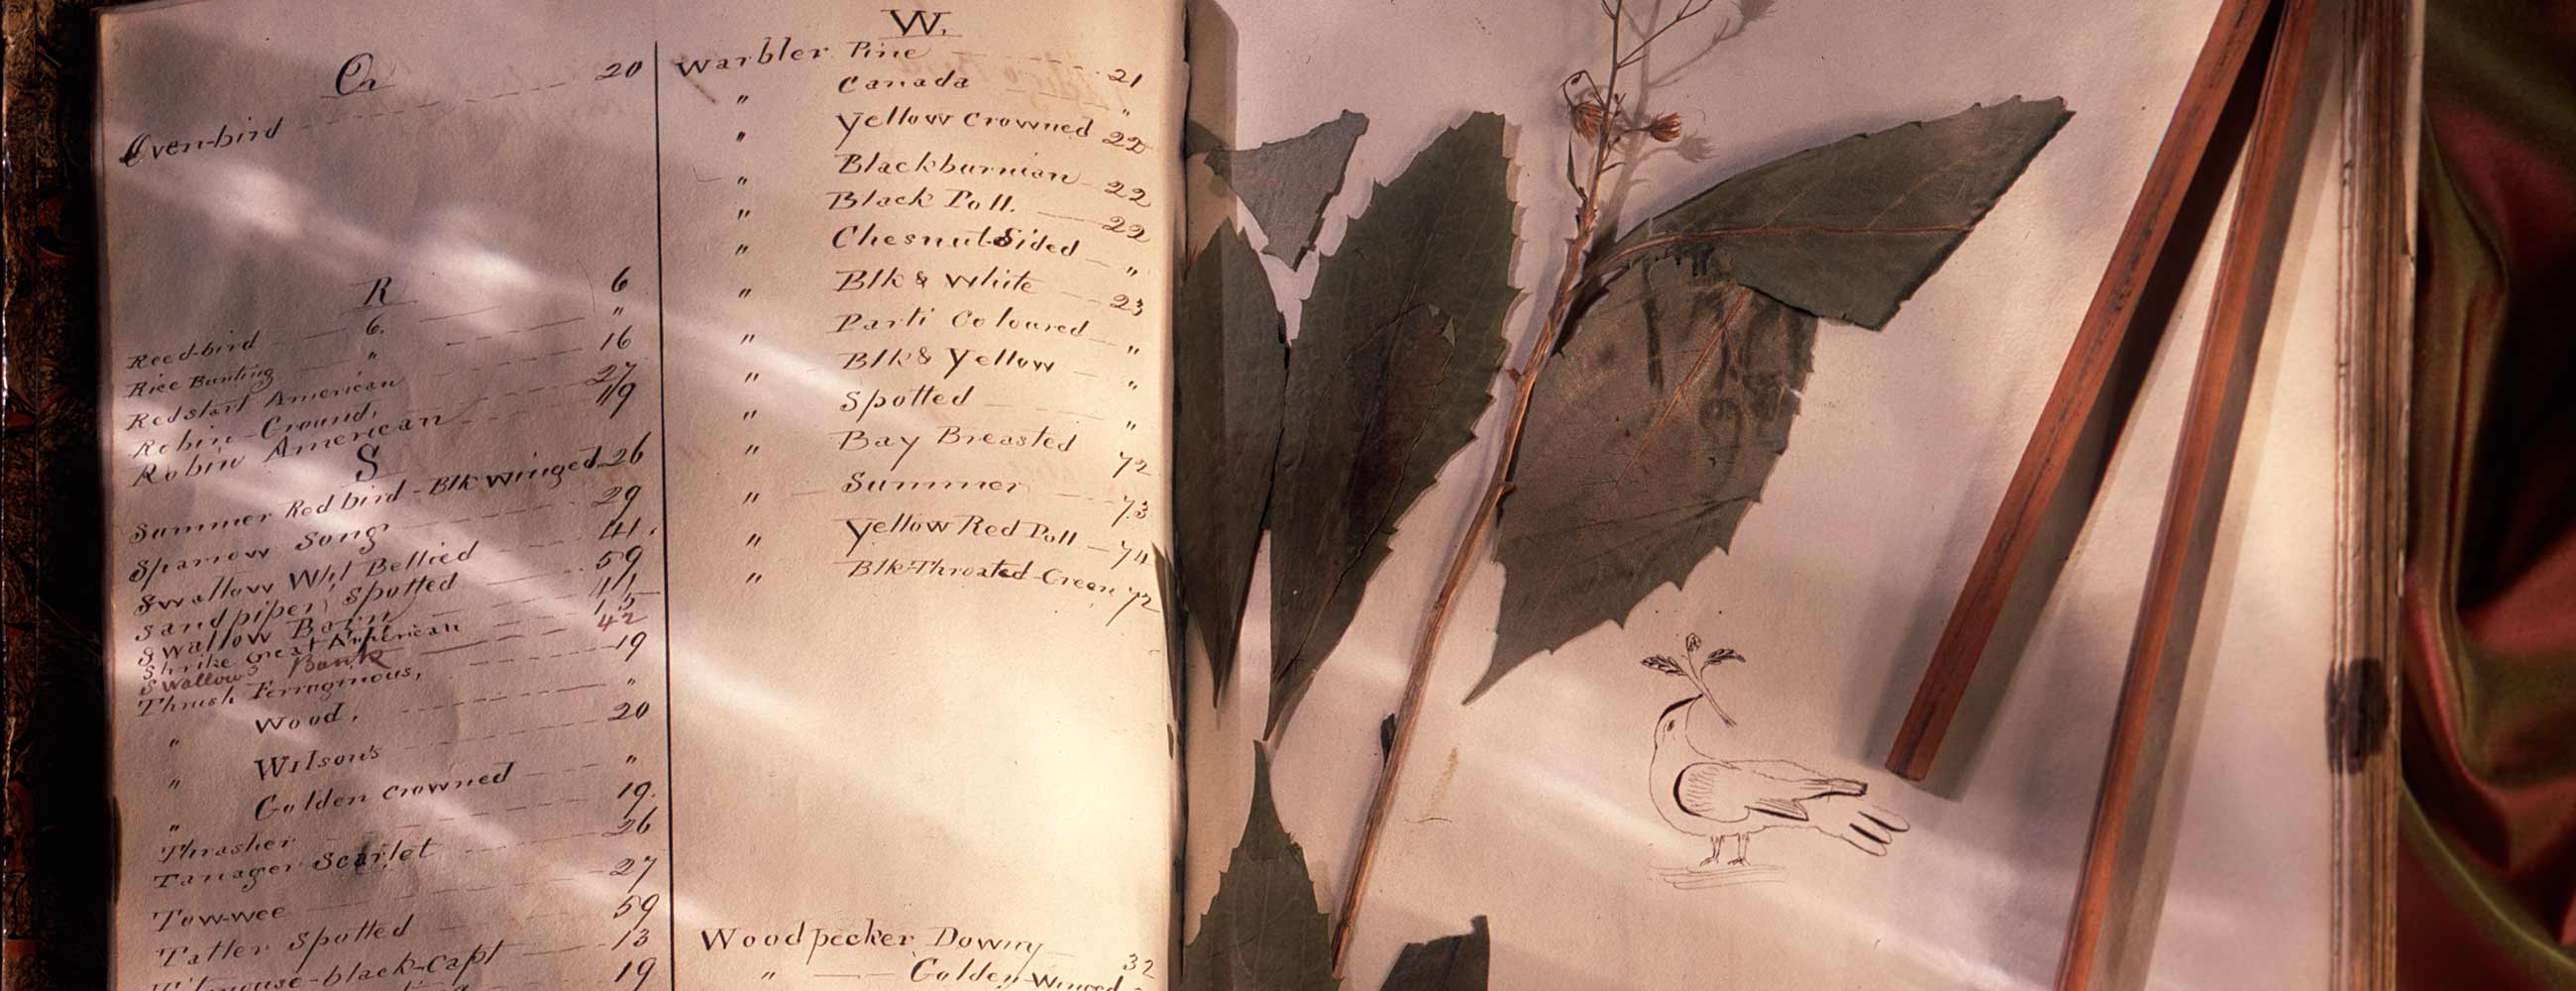 O
Oven-bird 20
R
Reed-bird 6. 6
Rice Bunting " "
Redstart American 16
Robin-Ground, 27
Robin American 19
S
Summer Red bird - Blk winged 26
Sparrow Song 29
Swallow Wht Bellied 41.
Sandpiper Spotted 59
Swallow Barn 41
Shrike Great American 15
Swallow Bank 42
Thrush Ferruginous, 19
" Wood, "
" Wilson's 20
" Golden crowned "
Thrasher 19.
Tanager Scarlet 26
Tow-wee 27
Tatler Spotted 59
Titmouse-black-Capt 13
19
W.
Warbler Pine 21
" Canada "
" Yellow Crowned 22
" Blackburnian 22
" Black Poll. 22
" Chesnut-Sided "
" Blk & White 23
" Parti Coloured "
" Blk & Yellow "
" Spotted "
" Bay Breasted 72
" Summer 73
" Yellow Red Poll 74
" Blk-Throated-Green 72
Woodpecker Downy 32
" Golden-Winged